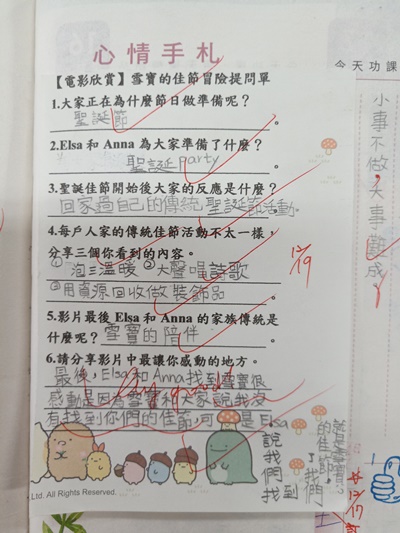 心情手札
今天功課
【電影欣賞】雪寶的佳節冒險提問單
1.大家正在為什麼節日做準備呢？
聖誕節。
2.Elsa 和 Anna 為大家準備了什麼？
聖誕party。
3.聖誕佳節開始後大家的反應是什麼？
回家過自己的傳統聖誕節活動。
4.每戶人家的傳統佳節活動不太一樣，
分享三個你看到的內容。
①泡三溫暖 ②大聲唱詩歌
③用資源回收做裝飾品。
5.影片最後 Elsa 和 Anna 的家族傳統是
什麼呢？雪寶的陪伴。
6.請分享影片中最讓你感動的地方。
最後，Elsa和Anna找到雪寶很
感動是因為雪寶和大家說我沒
有找到你們的佳節，可是Elsa
說我們找到
了我們的佳節，
就是雪寶。
小事不做，大事難成。
12/19
12/17
Ltd. All Rights Reserved.